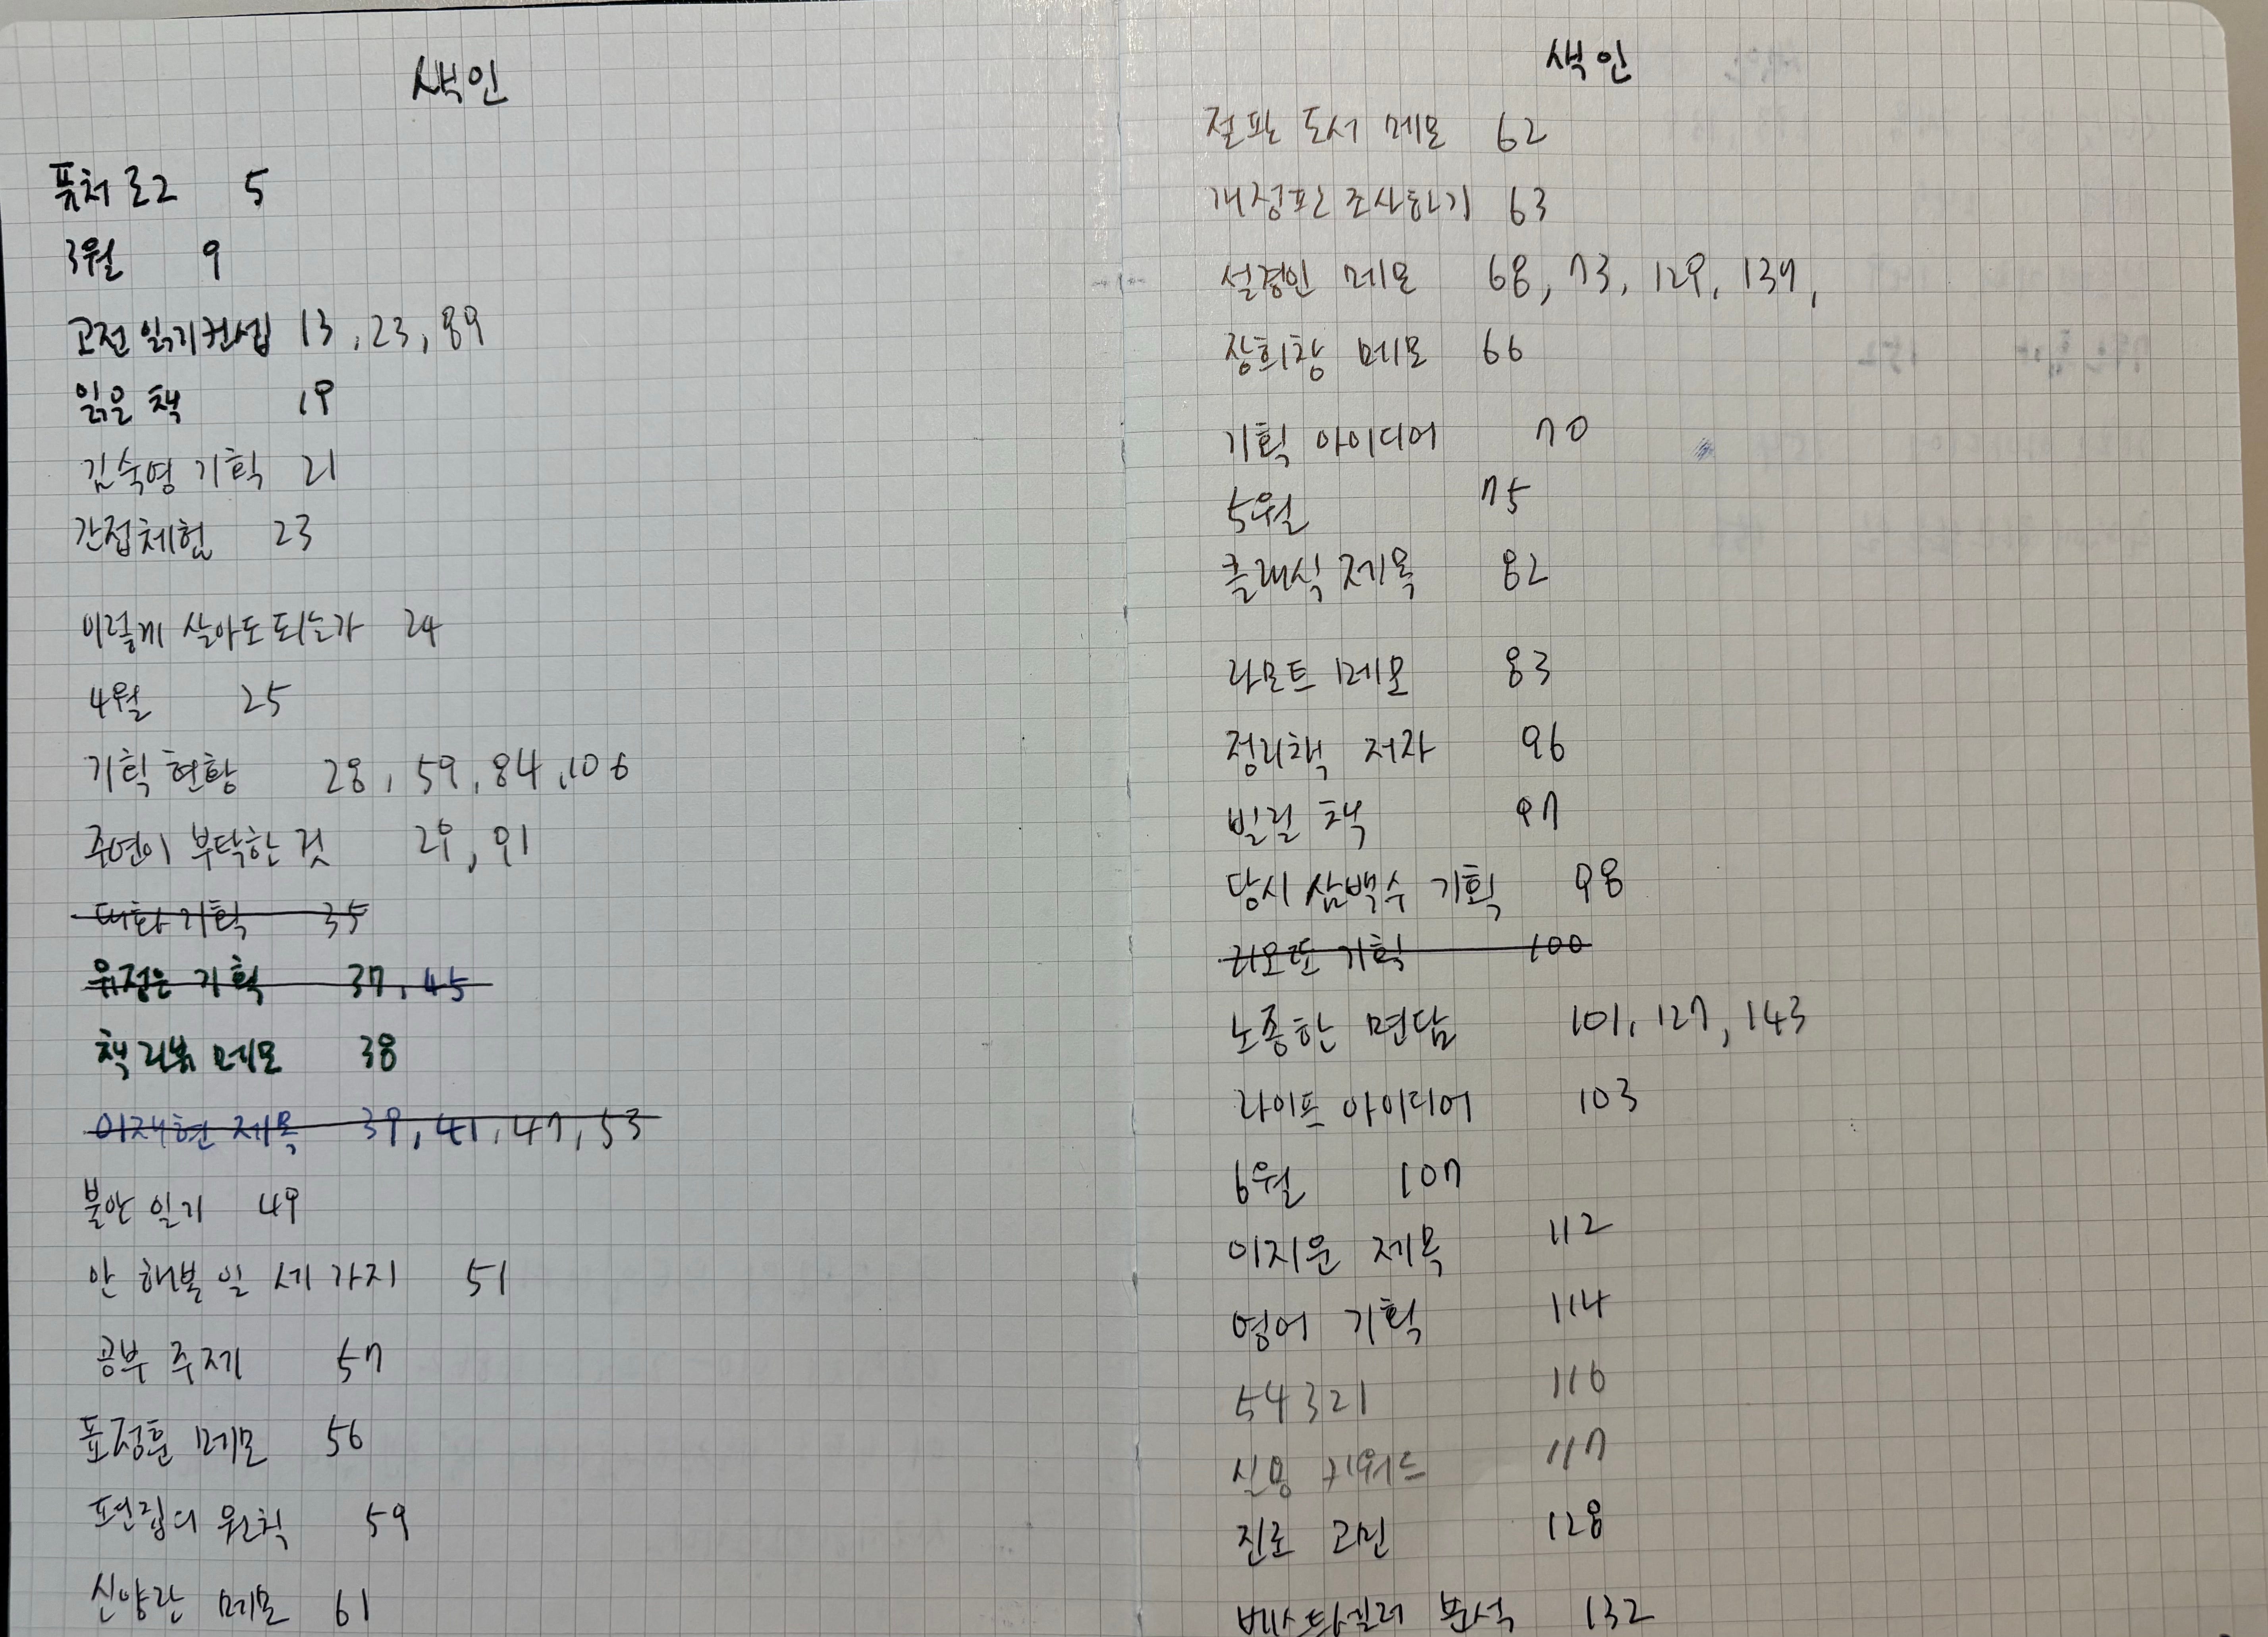 색인
퓨처 로그 5
3월 9
고전 읽기 컨셉 13, 23, 89
읽은 책 19
김숙영 기획 21
간접체험 23
이렇게 살아도 되는가 24
4월 25
기획 현황 28, 59, 84, 106
주연이 부탁한 것 29, 91
대화 기획 35
위정은 기획 37, 45
책 리뷰 메모 38
이재현 제목 39, 41, 47, 53
불안 일기 49
안 해본 일 세 가지 51
공부 주제 57
표정훈 메모 56
편집의 원칙 59
신양란 메모 61
색인
절판 도서 메모 62
개정판 조사하기 63
설경인 메모 68, 73, 129, 137,
장희창 메모 66
기획 아이디어 70
5월 75
클래식 제목 82
라모트 메모 83
정리책 저자 96
빌릴 책 97
당시 삼백수 기획 98
기획 100
노종한 면담 101, 127, 143
라이프 아이디어 103
6월 107
이지운 제목 112
영어 기획 114
54321 116
실용 키워드 117
진로 고민 128
베스트셀러 분석 132